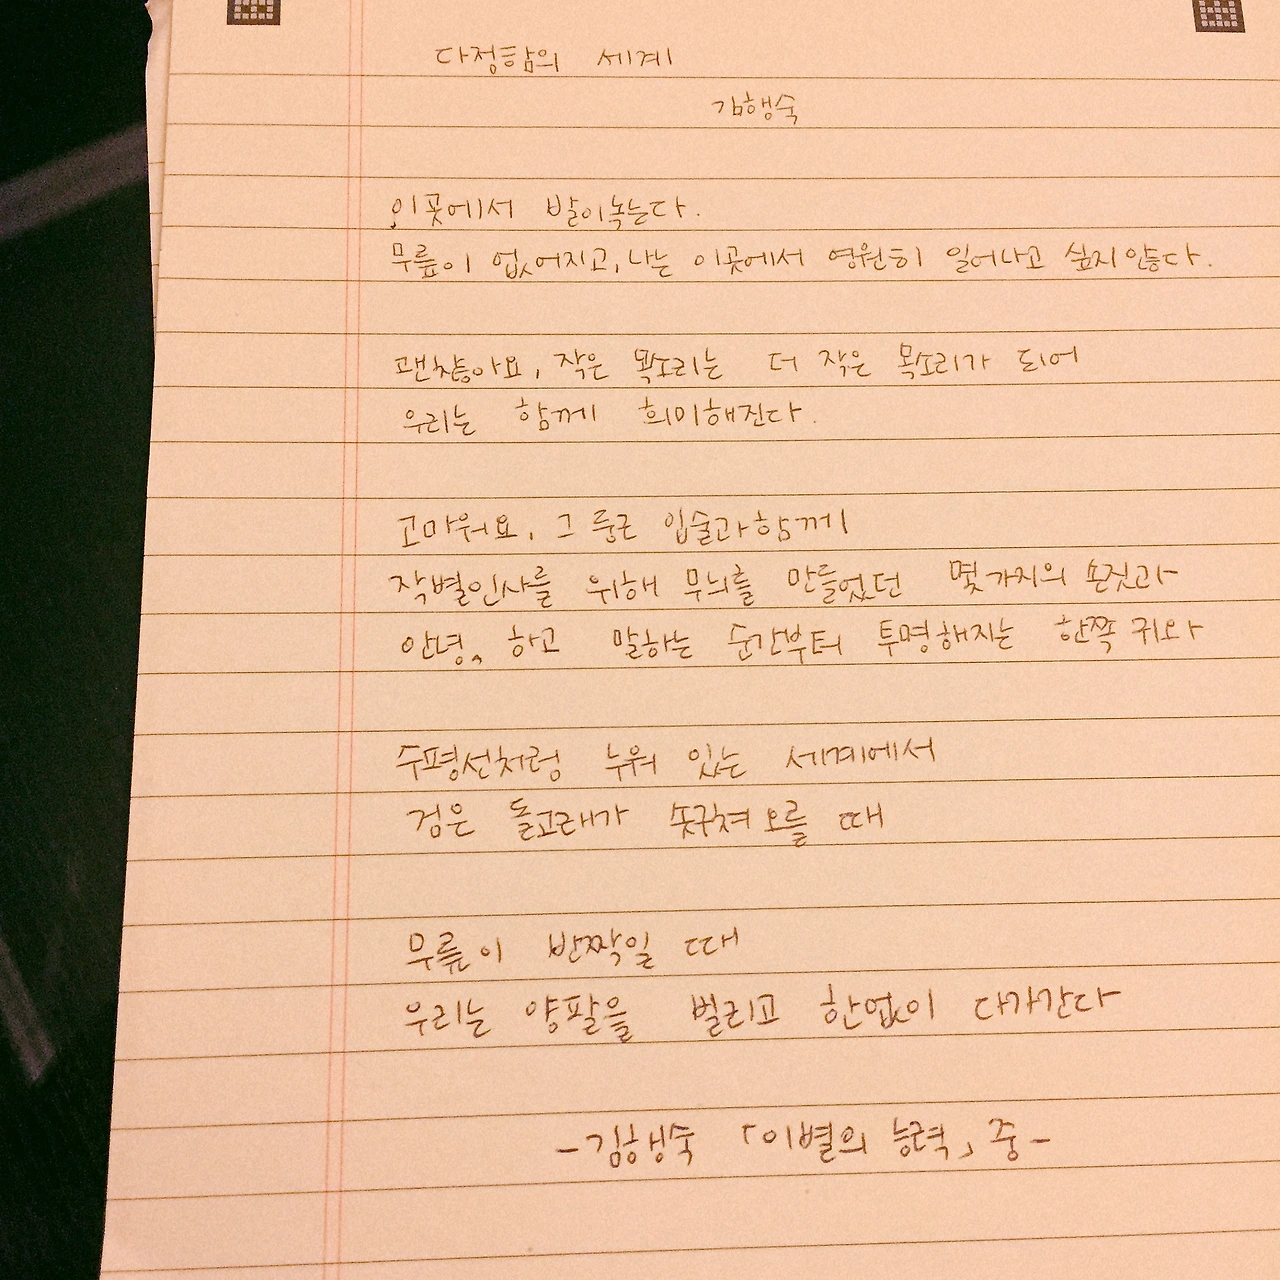 다정함의 세계
김행숙
이곳에서 발이 녹는다.
무릎이 없어지고, 나는 이곳에서 영원히 일어나고 싶지 않다.
괜찮아요, 작은 목소리는 더 작은 목소리가 되어
우리는 함께 희미해진다.
고마워요, 그 둥근 입술과 함께
작별인사를 위해 무늬를 만들었던 몇 가지의 손짓과
안녕, 하고 말하는 순간부터 투명해지는 한쪽 귀와
수평선처럼 누워 있는 세계에서
검은 돌고래가 솟구쳐 오를 때
무릎이 반짝일 때
우리는 양팔을 벌리고 한없이 다가간다
-김행숙 「이별의 능력」 중-